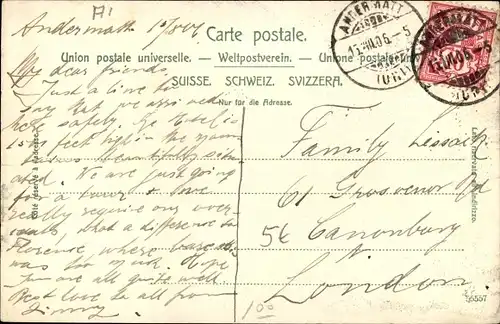 A1
Andermatt 15/8/06
Carte postale.
Union postale universelle. — Weltpostverein. — Unione postale
SUISSE. SCHWEIZ. SVIZZERA.
Nur für die Adresse.
ANDERMATT
15.VIII.06.-5
(URI)
My dear friends,
Just a line to
say that we arrived
here safely. The Hotel is
feet high in the
beautifully situ-
ated. We are just going
for a and
really require our over-
coats, what a difference to
Florence where
was too much. Hope
you are all quite well
Best love to all from
Jimmy
Côté réservé à
Family Lissack
61 Grosvenor Rd
Canonbury
London
56
100
55557